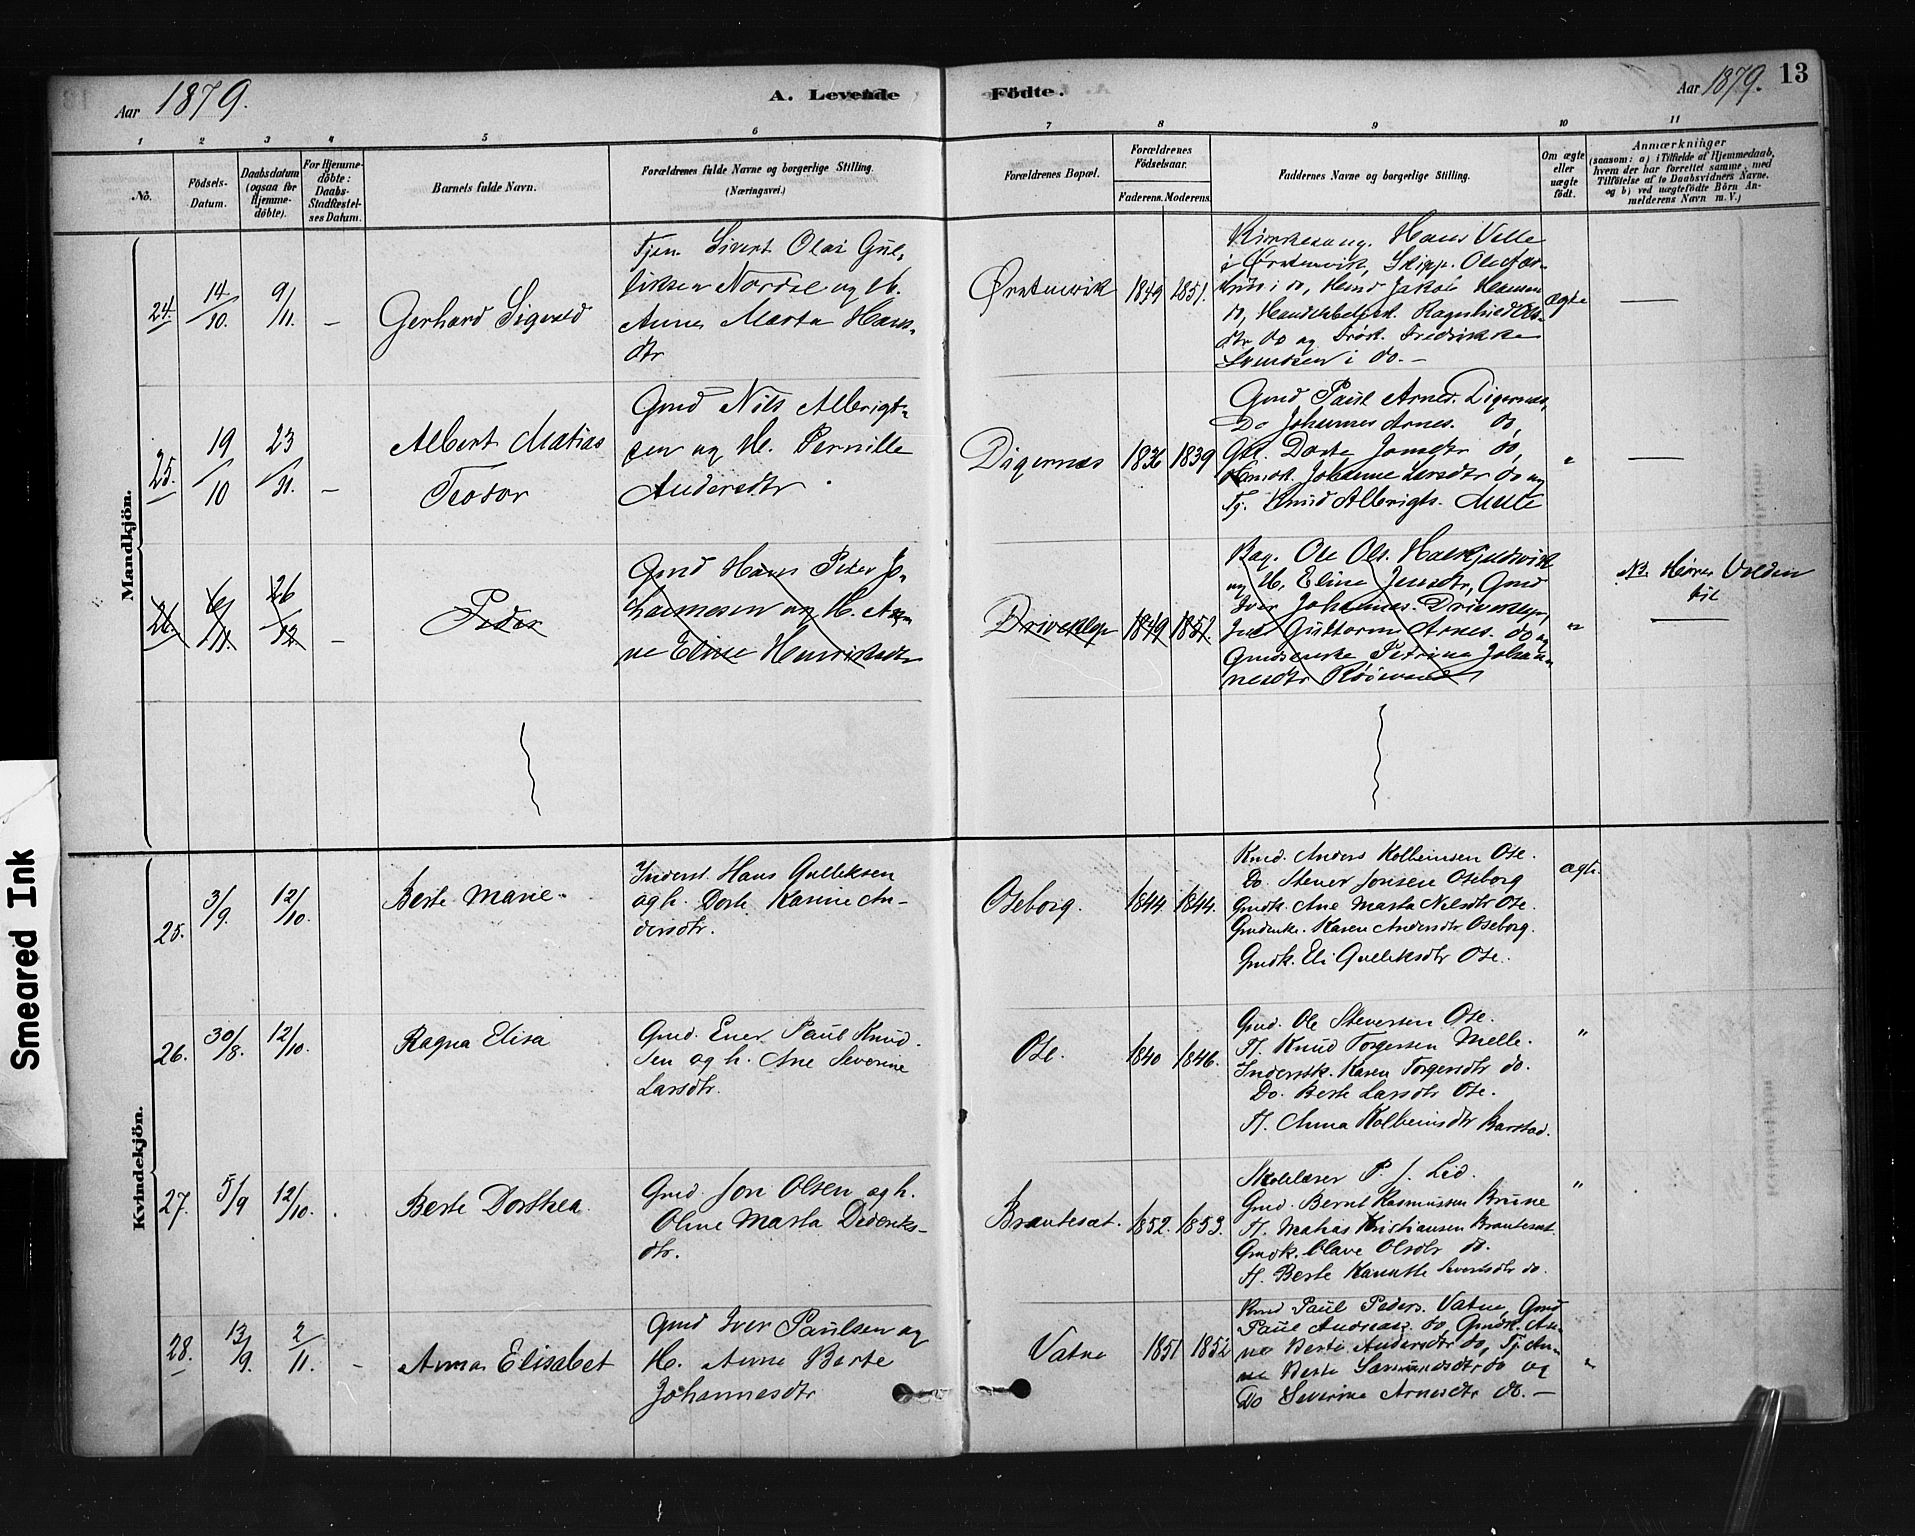 Aar 1879.
A. Levende Födte.
Aar 1879. 13
1 2 3 4 5 6 7 8 9 10 11
No.
Födsels-
Datum.
Daabsdatum
(ogsaa for
Hjemme-
döbte).
For Hjemme-
döbte:
Daabs-
Stadfæstel-
ses Datum.
Barnets fulde Navn.
Forældrenes fulde Navne og borgerlige Stilling.
(Næringsvei.)
Forældrenes Bopæl.
Forældrenes
Födselsaar.
Faderens. Moderens.
Faddernes Navne og borgerlige Stilling.
Om ægte
eller
uægte
födt.
Anmærkninger
(saasom: a) i Tilfælde af Hjemmedaab,
hvem der har forrettet samme, med
Tilföielse af to Daabsvidners Navne.
og b) ved uægtefödte Börn An-
melderens Navn m. V.)
Mandkjön.
24. 14/10. 9/11. –
Gerhard Sigvald
Tjen. Sivert Olai Gul-
liksen Nordal og H.
Anne Marta Hans-
dtr
Ørstenvik 1849 1851.
Kirkesang. Hans Velle
i Ørstenvik, Skipp. Ole Aar-
i do, Kmd Jakob
do, Ragnhild Ols-
dtr do og Fredrikke
Svendsen i do. –
ægte —
25. 19/10 23/11. –
Albert Matias
Teodor
Gmd Nils Albrigt-
sen og H. Pernille
Andersdtr
Digernæs 1836 1839
Gmd Paul Arnes. Digernes,
Do Johannes Arnes. do,
Dorte Jonsdtr do,
Johanne Larsdtr do og
Tj. Knud Albrigts. Melle
" —
26. 6/11. 26/12 –
Peder
Gmd Hans Peter Jo-
hannesen og H. An-
ne Eline Henriksdtr
Driveklep 1849 1852.
Bag. Ole Ols.
og H. Eline Jensdtr, Gmd
Iver Johannes. Driveklep,
Guttorm Arnes. do og
Gmdsenke Petrine Johan-
nesdtr
"
NB. Hører Volden
til
—
Kvindekjön.
25. 3/9. 12/10.
Berte Marie.
Inderst Hans Gulliksen
og h. Dorte Karine An-
dersdtr.
Oseborg. 1844. 1844.
Kmd. Anders Kolbeinsen Ose.
Do. Stener Jonsen Oseborg
Gmdk. Ane Marta Nilsdtr Ose.
Gmdenke. Karen Andersdtr Oseborg.
Gmdk. Eli Gulliksdtr Ose.
ægte
26. 30/8. 12/10.
Ragna Elisa
Gmd. Ener Paul Knud-
sen og h. Ane Severine
Larsdtr.
Ose. 1840 1846.
Gmd. Ole Steversen Ose.
Tj. Knud Torgersen Melle.
Inderstk. Karen Torgersdtr do.
Do. Berte Larsdtr Ose.
Tj. Anna Kolbeinsdtr Barstad.
"
27. 5/9 12/10.
Berte Dorthea
Gmd. Jon Olsen og h.
Oline Marta Dideriks-
dtr.
Brautesæt. 1852. 1853.
Skolelærer P. J. Lid.
Gmd. Bernt Rasmussen Brune
Tj. Matias Kristiansen Brautesæt
Gmdk. Olave Olsdtr do.
Tj. Berte Sivertsdtr do.
"
28. 13/9. 2/11. –
Anna Elisabet
Gmd Iver Paulsen og
H. Anne Berte
Johannesdtr
Vatne 1851 1852
Kmd Paul Peders. Vatne, Gmd
Paul Andreas. do, Gmdk. An-
ne Berte Andersdtr do, Tj. An-
ne Berte do og
Do Severine Arnesdtr do. –
"
Smeared Ink